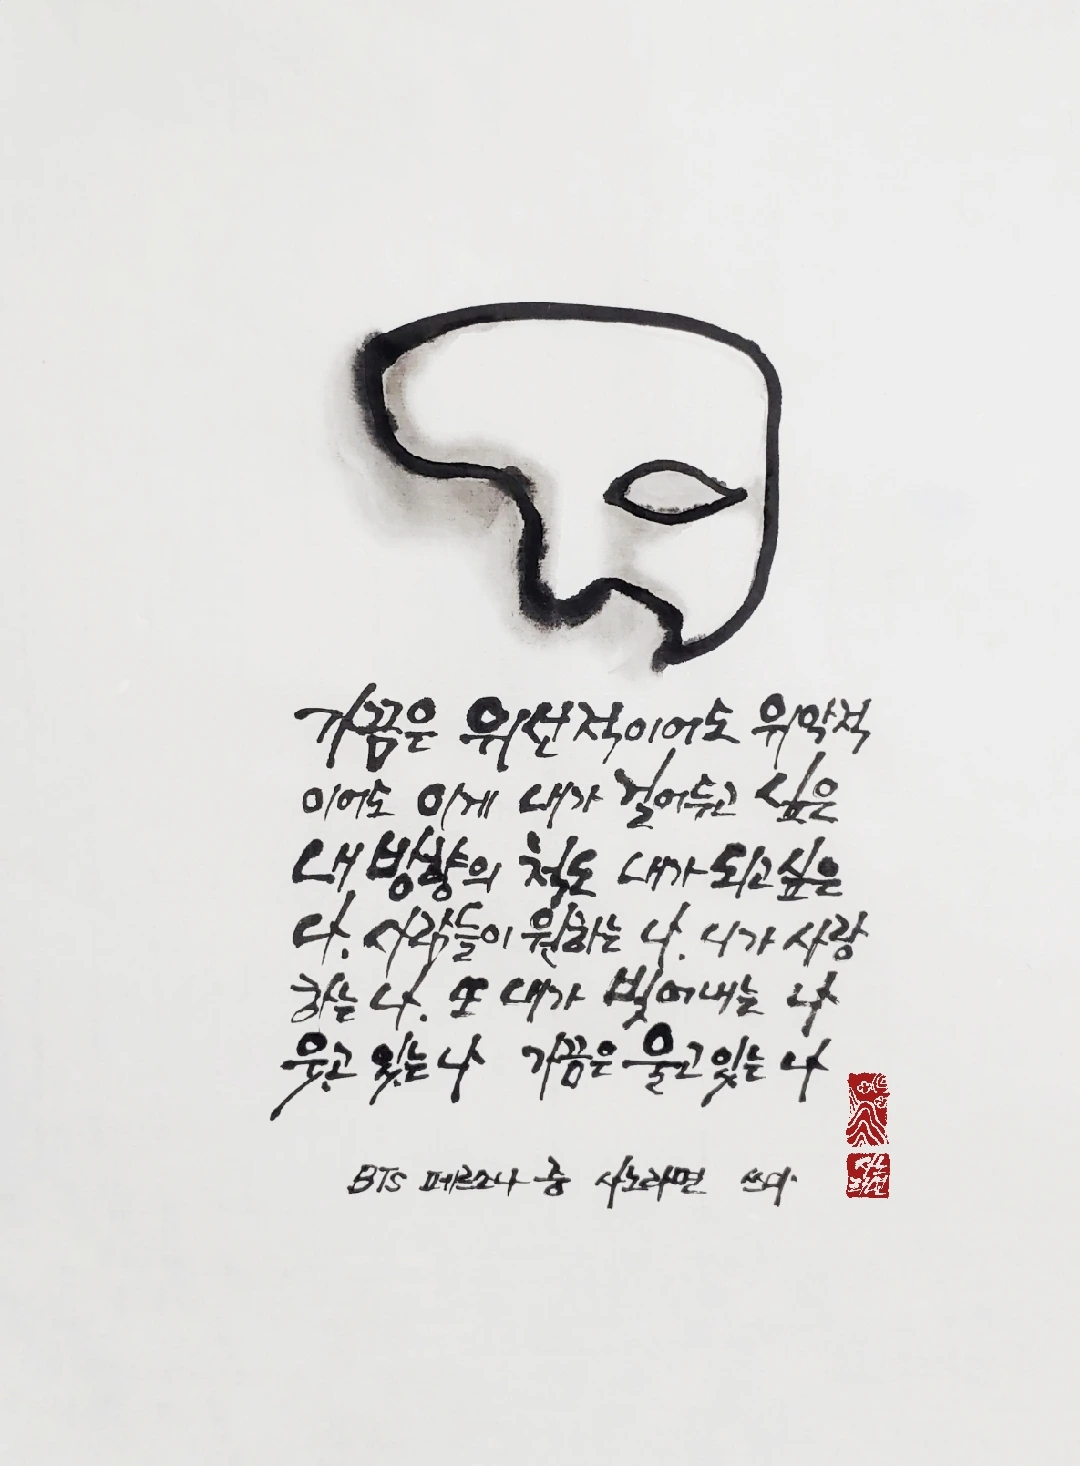 가끔은 위선적이어도 위악적
이어도 이게 내가 걸어두고 싶은
내 방향의 척도 내가 되고 싶은
나. 사람들이 원하는 나. 니가 사랑
하는 나. 또 내가 빚어내는 나
웃고 있는 나 가끔은 울고 있는 나
BTS 페르소나 중 시노라면 쓰다.